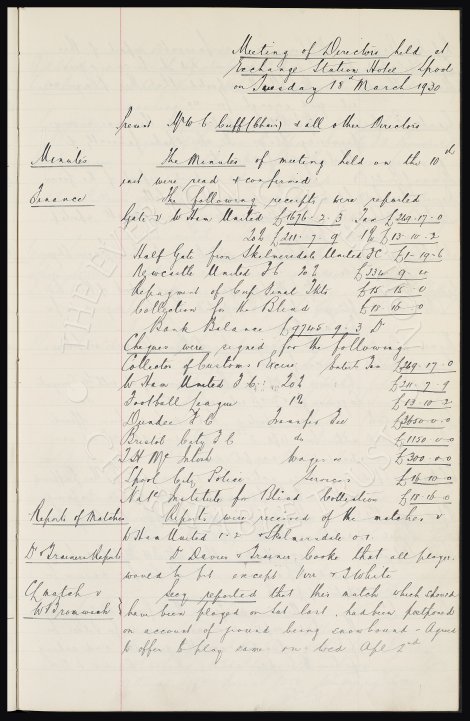 Meeting of Directors held at
Exchange Station Hotel L'pool
on Tuesday 18th March 1930
Present Mr W C Cuff (Chair) & all other Directors
Minutes The Minutes of meeting held on the 10th
inst were read & confirmed
Finance The following receipts were reported
Gate v W Ham United £1676-2-3 Tax £249.17.0
20% £211-7-9 1% £13-10-2
Half Gate from Skelmersdale United FC £1-19-6
Newcastle United FC 20% £334 9 11
Repayment of Cup Final Tkts £15-15-0
Collection for the Blind £18-16-0
Bank Balance £9745-9-3 Dr
Cheques were signed for the following
Collector of Customs & Excise Ent Tax £249.17.0
W Ham United FC 20% £211-7-9
Football League 1% £13-10-2
Dundee FC Transfer Fee £3650-0-0
Bristol City FC do £1150-0-0
T H McIntosh Wages £300-0-0
L'pool City Police Services £16-10-0
Nat. Institute for Blind Collection £18-16-0
Reports of Matches Reports were received of the matches v
W Ham United 1-2 & Skelmersdale
Dr & Trainers Report Dr Davies & Trainer Cooke that all players
would be fit except & T White
CL match v Secy reported that this match which should
W Bromwich have been played on Sat last, had been postponed
on account of ground being snowbound - Agreed
to offer to play same on Wed Apl 2nd